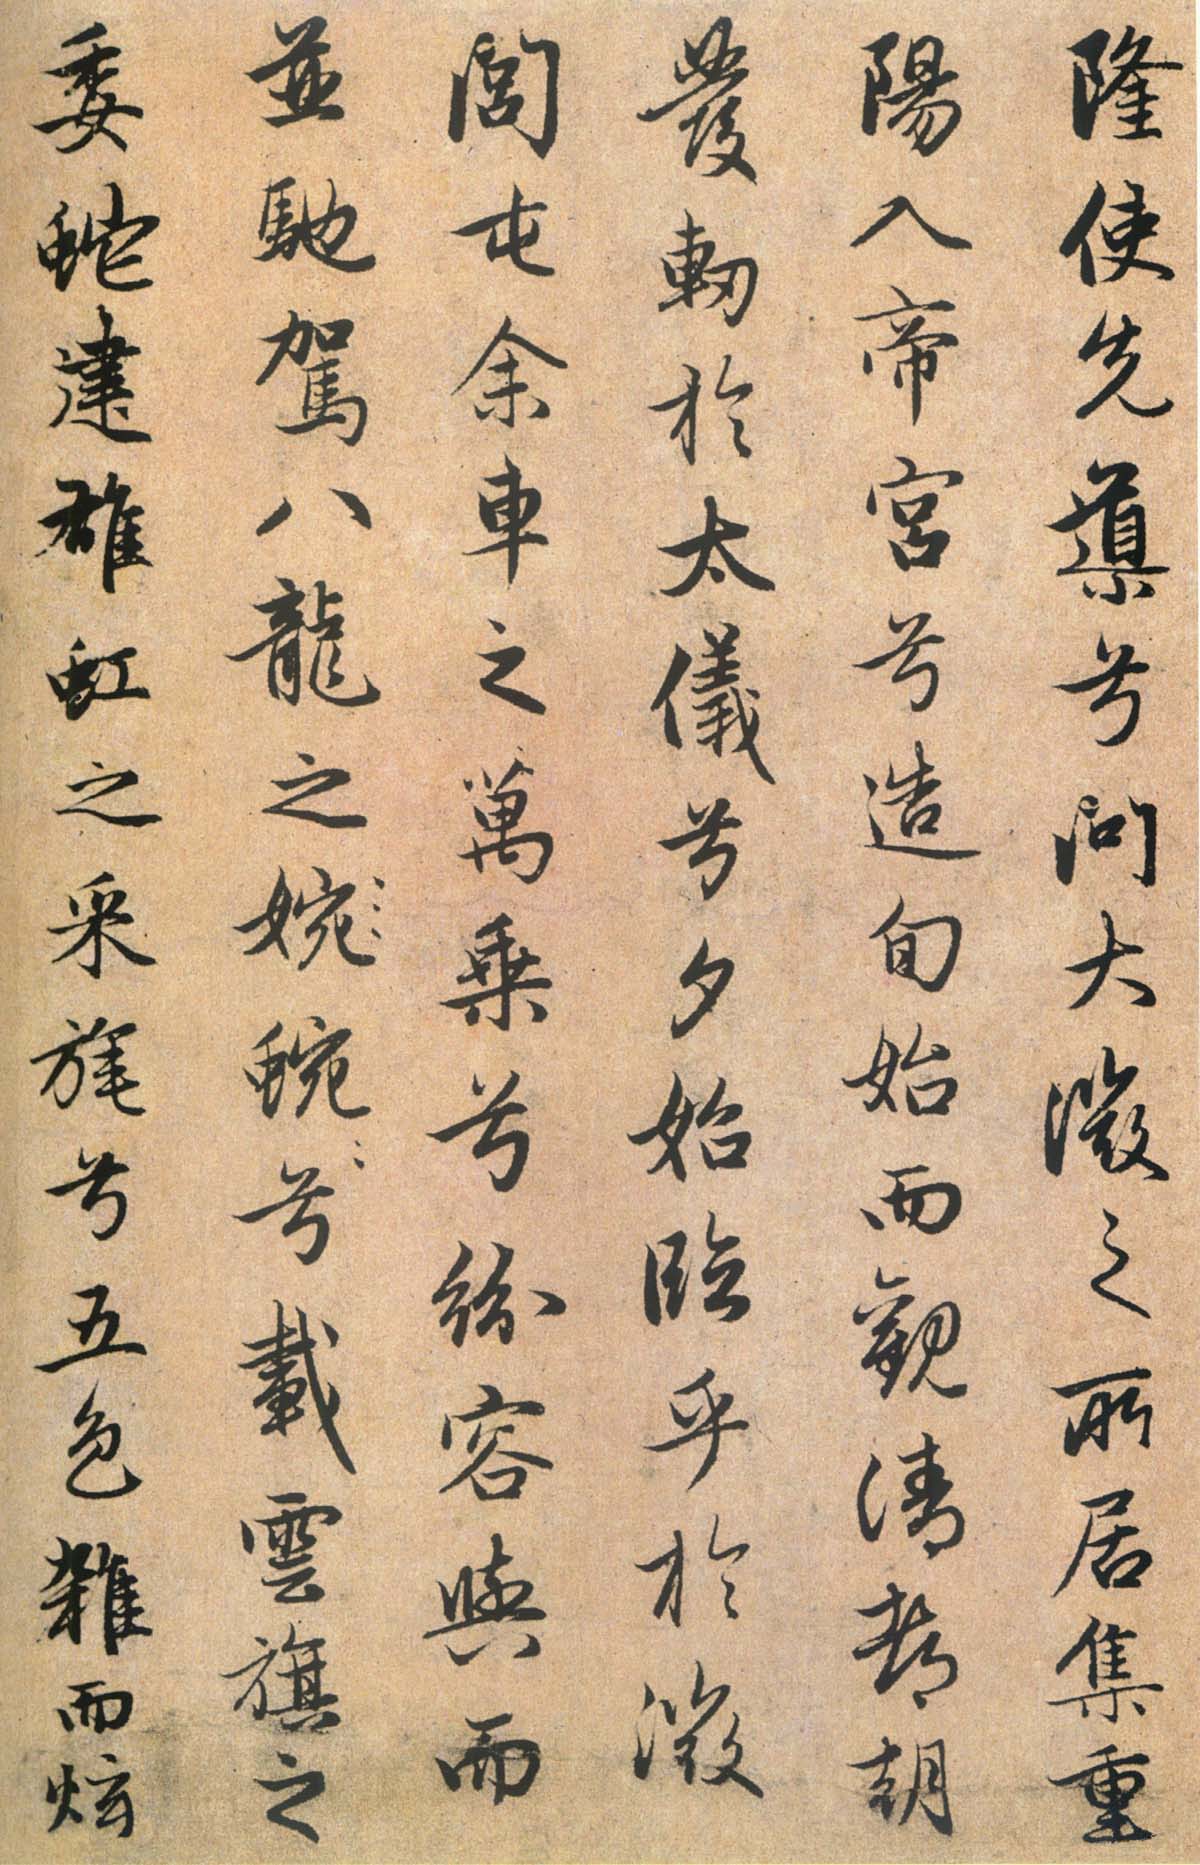 隆使先導兮問大微之所居集重
陽入帝宮兮造旬始而觀清都朝
發軔於太儀兮夕始臨乎於微
閭屯余車之萬乘兮紛容與而
並馳駕八龍之婉蜿兮載雲旗之
委蛇建雄虹之采旄兮五色雜而炫